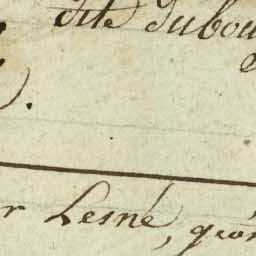 dite Dubou
).
r Lesné, géo